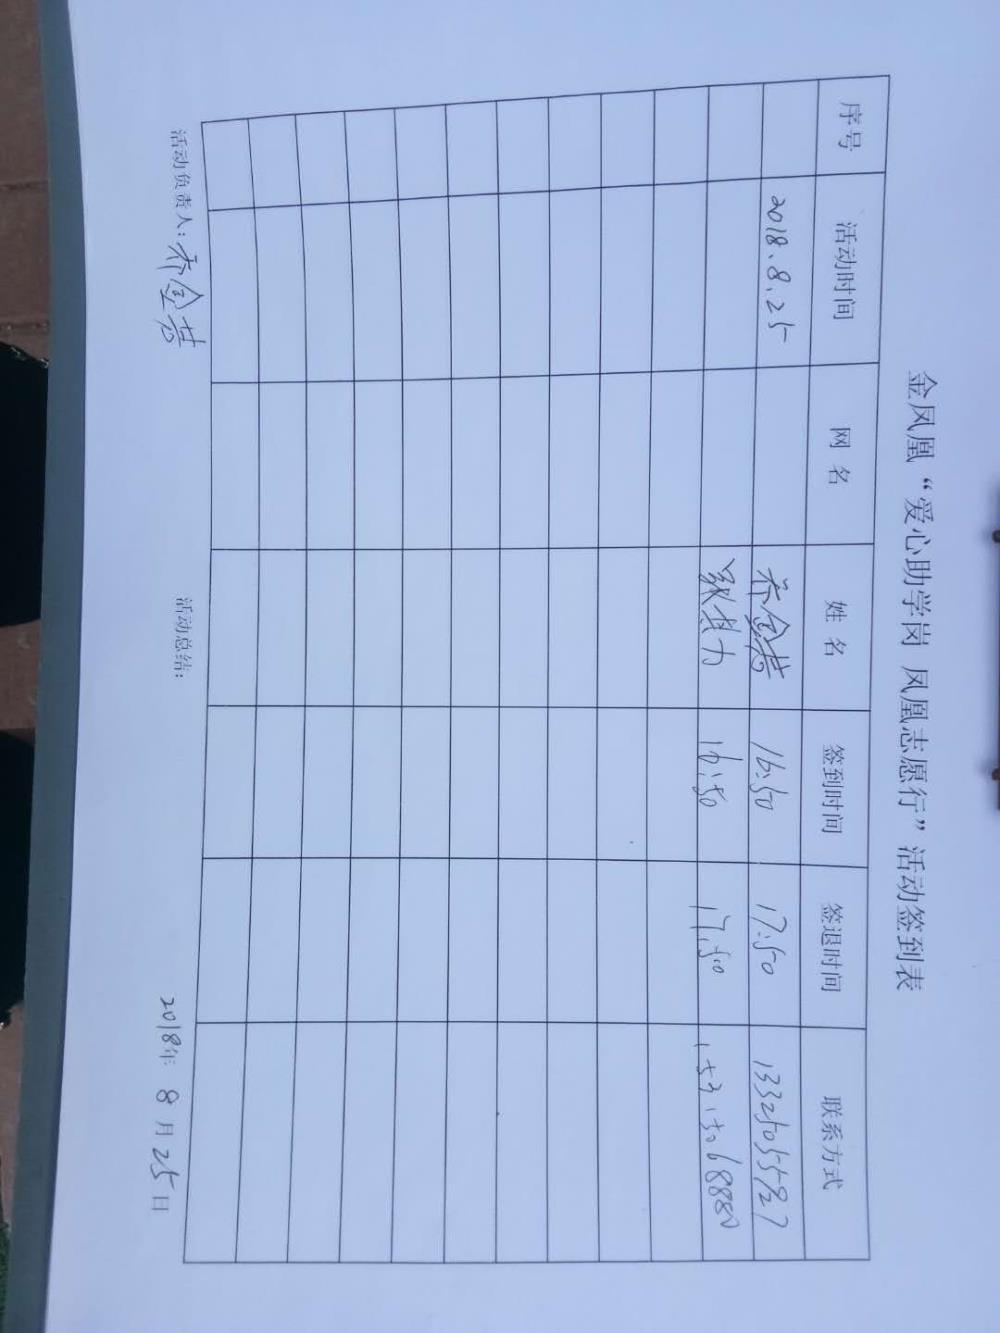 金凤凰“爱心助学岗 凤凰志愿行”活动签到表
序号 活动时间 网 名 姓 名 签到时间 签退时间 联系方式
2018.8.25 乔金 16:50 17:50
16:50 17:50
活动负责人：乔金 活动总结： 2018年 8 月 25 日